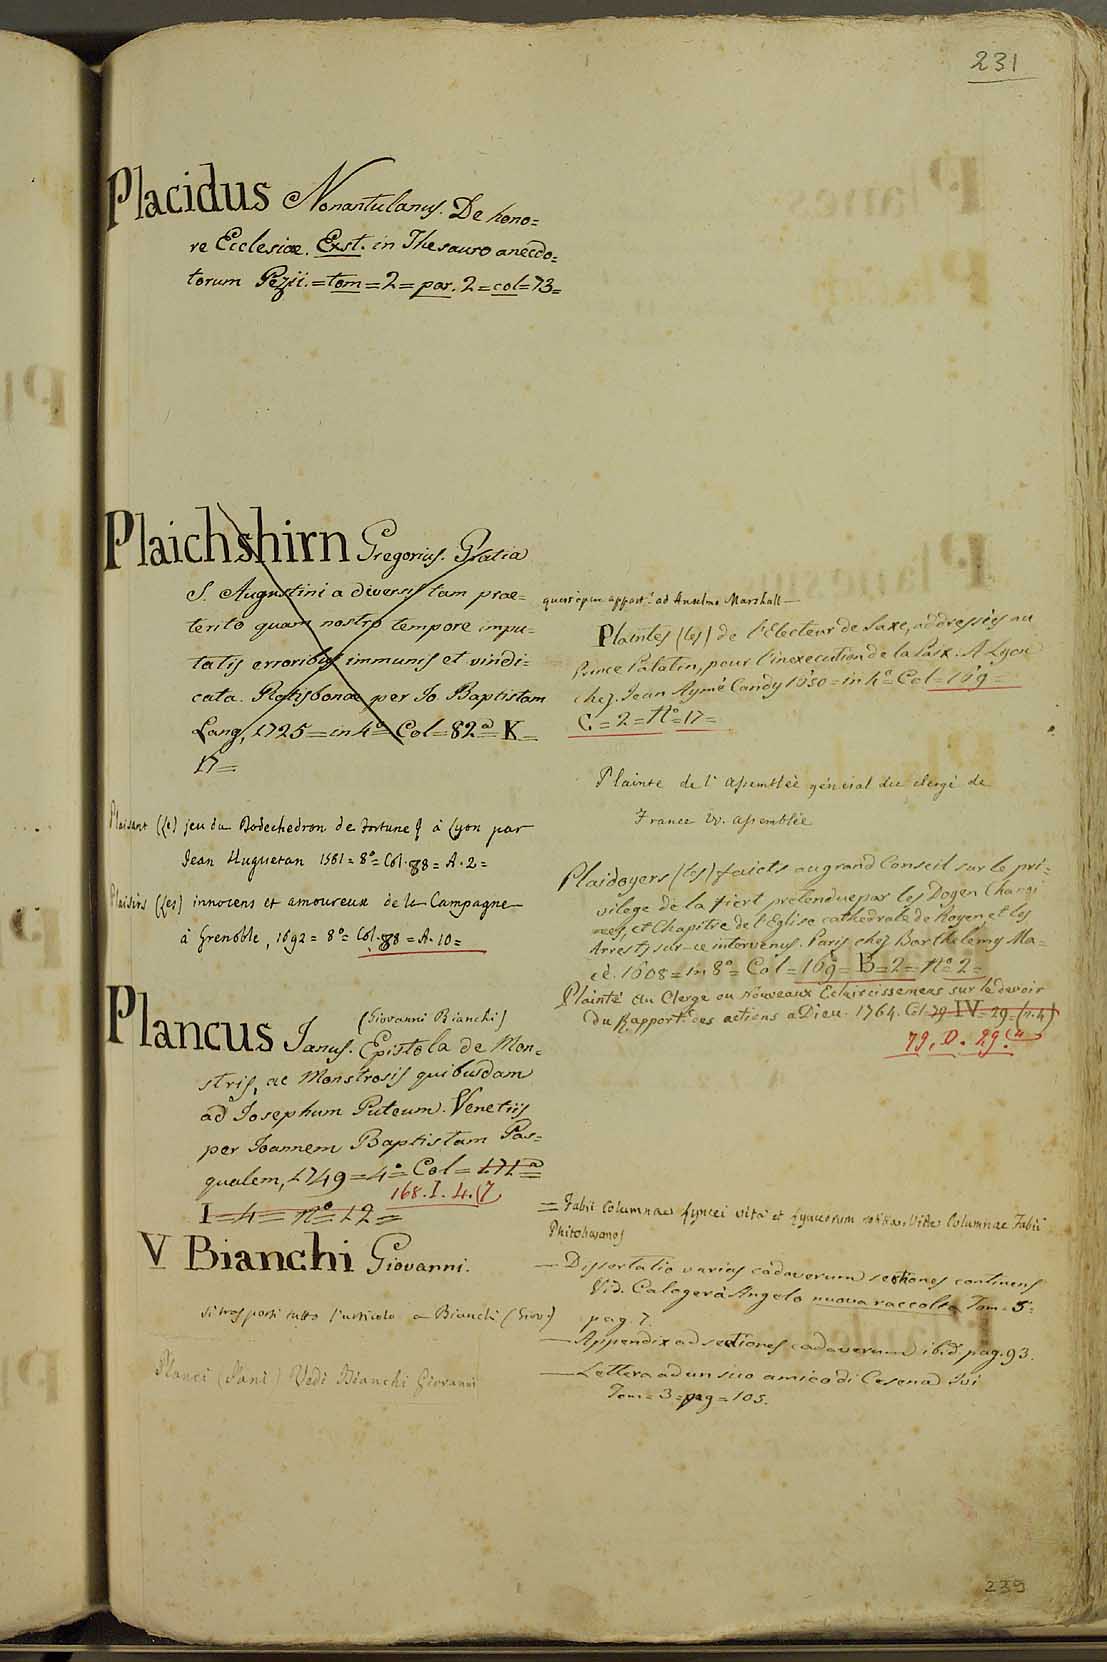 231
Placidus Nonantulanus. De hono=
re Ecclesiæ. Exst. in Thesauro anecdo=
torum Pezii. = tom = 2 = par. 2 = col = 73 =
Plaichshirn Gregorius. Gratia
S. Augustini a diversis tam præ=
terito quam nostro tempore impu=
tatis erroribus immunis et vindi=
cata. Ratisbonæ per Jo Baptistam
Lang, 1725 = in 4º = Col = 82ª = K =
17 =
Plaisant (Le) jeu du Dodechedron de fortune à Lyon par
Jean Huguetan 1581 = 8º = Col. 88 = A. 2 =
Plaisirs (Les) innocens et amoureux de la Campagne
à Grenoble, 1692 = 8º = Col. 88 = A. 10 =
(Giovanni Bianchi)
Plancus Janus. Epistola de Mon=
stris, ac Monstrosis quibusdam
ad Josephum Puteum. Venetiis
per Joannem Baptistam Pas=
qualem, 1749 = 4º = Col = 171ª =
168. I. 4. (7
I = 4 = Nº = 12 =
V Bianchi Giovanni.
si trasporti tutto l'articolo a Bianchi (Giov:)
Planci (Jani) Vedi Bianchi Giovanni
ad Anselmo Marshall —
Plaintes (les) de l'Electeur de Saxe, addressées au
Prince Palatin, pour l'inexecution de la Paix. A Lyon
chez Jean Aymé Candy 1630 = in 4º = Col = 169 =
C = 2 = Nº = 17 =
Plainte de l'Assemblée général du clergé de
France V. Assemblée
Plaidoyers (les) faicts au grand Conseil sur le pri=
vilege de la fiert pretendue par les Doyen Chanoi
nes, et Chapitre de l'Eglise cathedrale de Royen, et les
Arrests sur ce intervenus. Paris chez Barthelemy Ma=
cè. 1608 = in 8º = Col = 169 = B = 2 = Nº 2 =
Plainte du Clerge ou nouveaux Eclaircissemens sur le devoir
du Rapport des actions a Dieu. 1764. Col. 79 IV = 29. (n. 4)
79. D. 29. (4
= Fabii Columnae Lyncei vita et Lynceorum Vide Columnae Fabii
Phitobasanos
— Dissertatio varias cadaverum sectiones continens
Vid. Calogerà Angelo nuova raccolta Tom = 3 =
pag. 7.
— Appendix ad sectiones cadaverum ibid. pag. 93.
— Lettera ad un suo amico di Cesena Ivi
Tom = 3 = pag = 105.
239